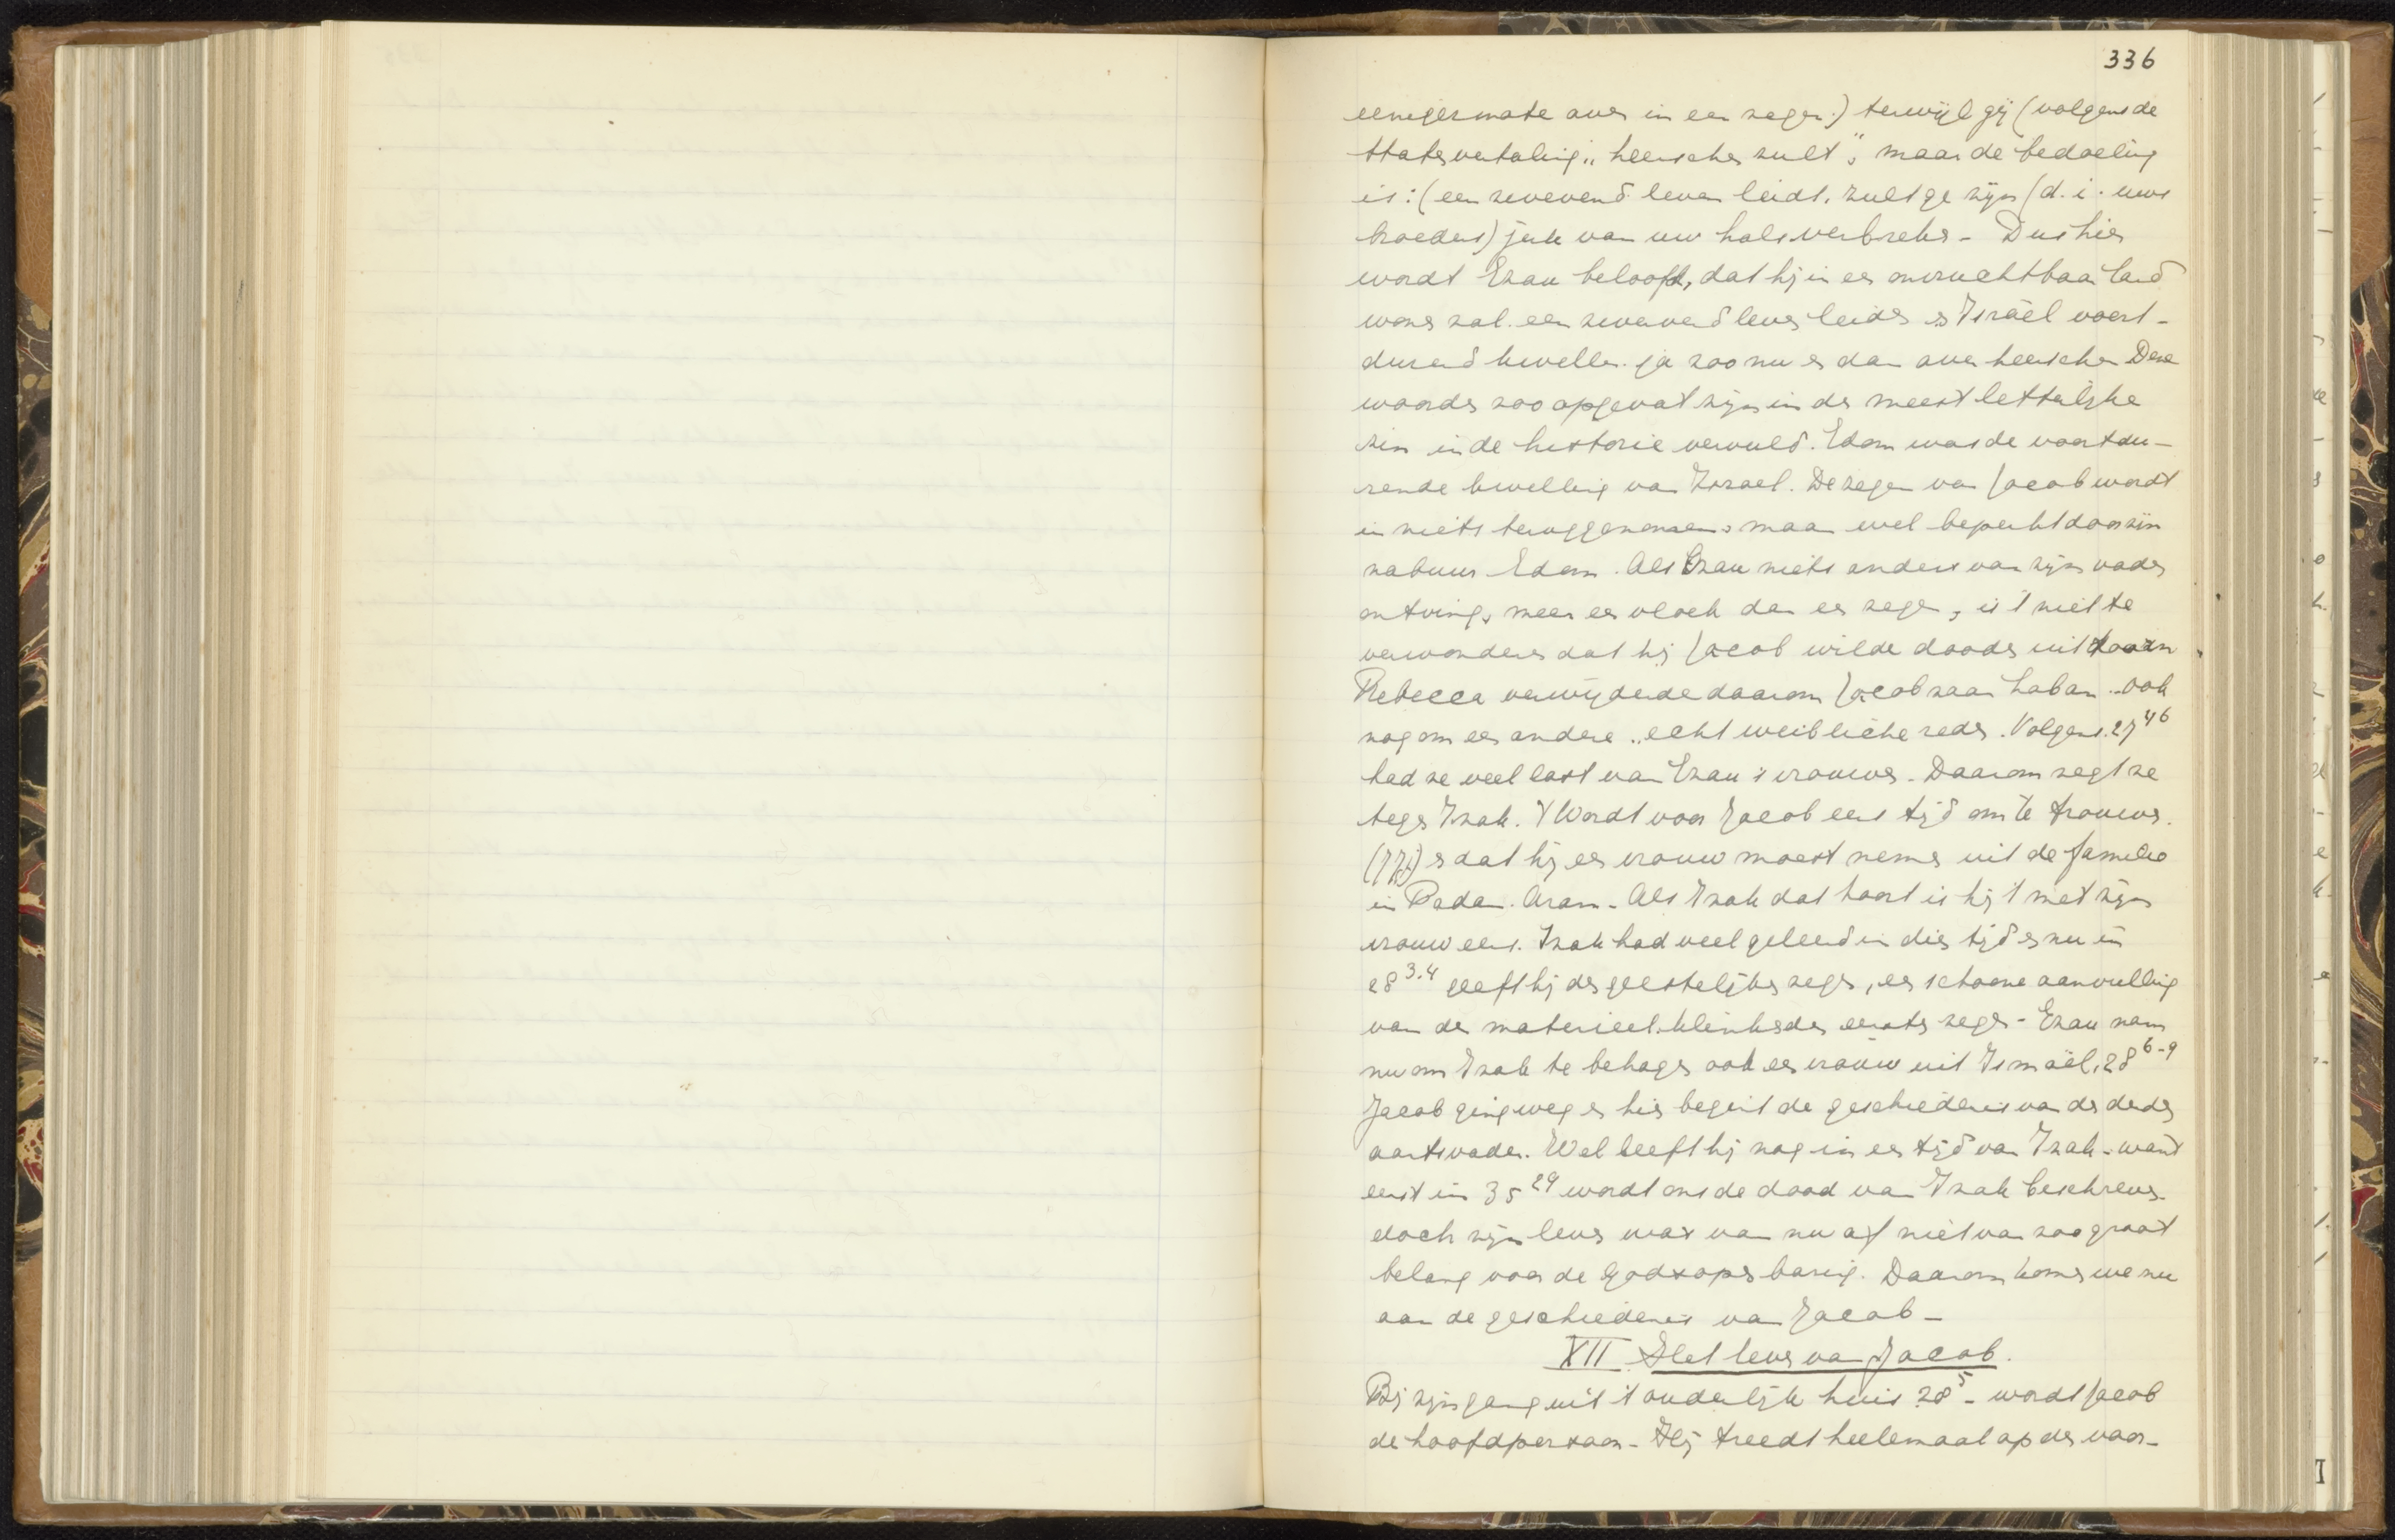 336
eenigermate over in een zegen.) terwijl gij (volgens de
Statenvertaling „heerschen zult", maar de bedoeling
is: (een zwevend leven leidt, zult ge zijn (d.i. uws
broeders) juk van uw hals verbreken - Dus hier
wordt Ezau beloofd, dat hij in een onvruchtbaar land
wonen zal. een zwervend leven leiden en Israël voort-
durend kwellen. ja zoo nu en dan over heerschen Deze
woorden zoo opgevat zijn in den meest letterlijke
zin in de historie vervuld. Edom was de voortdu-
rende kwelling van Israel. De zegen van Jacob wordt
in niets teruggenomen, maar wel beperkt door zijn
nabuur Edom. Als Ezau niets anders van zijn vader
ontving, meer een vloek dan een zegen, is 't niet te
verwonderen dat hij Jacob wilde dooden uit
Rebecca verwijderde daarom Jacob naar Laban. ook
nog om een andere „echt weibliche reden. Volgens 27 46
had ze veel last van Ezau's vrouwen - Daarom zegt ze
tegen Izak. 't Wordt voor Jacob eens tijd om te trouwen.
(77j) en dat hij een vrouw moest nemen uit de familie
in Padan. Aram - Als Izak dat hoort is hij 't met zijn
vrouw eens. Izak had veel geleerd in dien tijd en nu in
28 3.4 geeft hij den geestelijken zegen, een schoone aanvulling
van den materieel-klinkenden eersten zegen - Ezau nam
nu om Izak te behagen ook een vrouw uit Ismaël, 28 6-9
Jacob ging weg en hier begint de geschiedenis van den derden
aartsvader. Wel leeft hij nog in en tijd van Izak - want
eerst in 35 29 wordt ons de dood van Izak beschreven.
doch zijn leven was van nu af niet van zoo groot
belang voor de Godsopenbaring. Daarom komen we nu
aan de geschiedenis van Jacob -
XII Het leven van Jacob.
Bij zijn gang uit 't ouderlijk huis 28 5 - wordt Jacob
de hoofdpersoon - Hij treedt heelemaal op den voor-